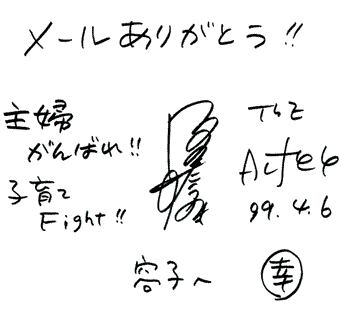 メールありがとう!!
主婦
がんばれ!!
子育て
Fight!!
The
Alfee
99.4.6
容子へ
幸